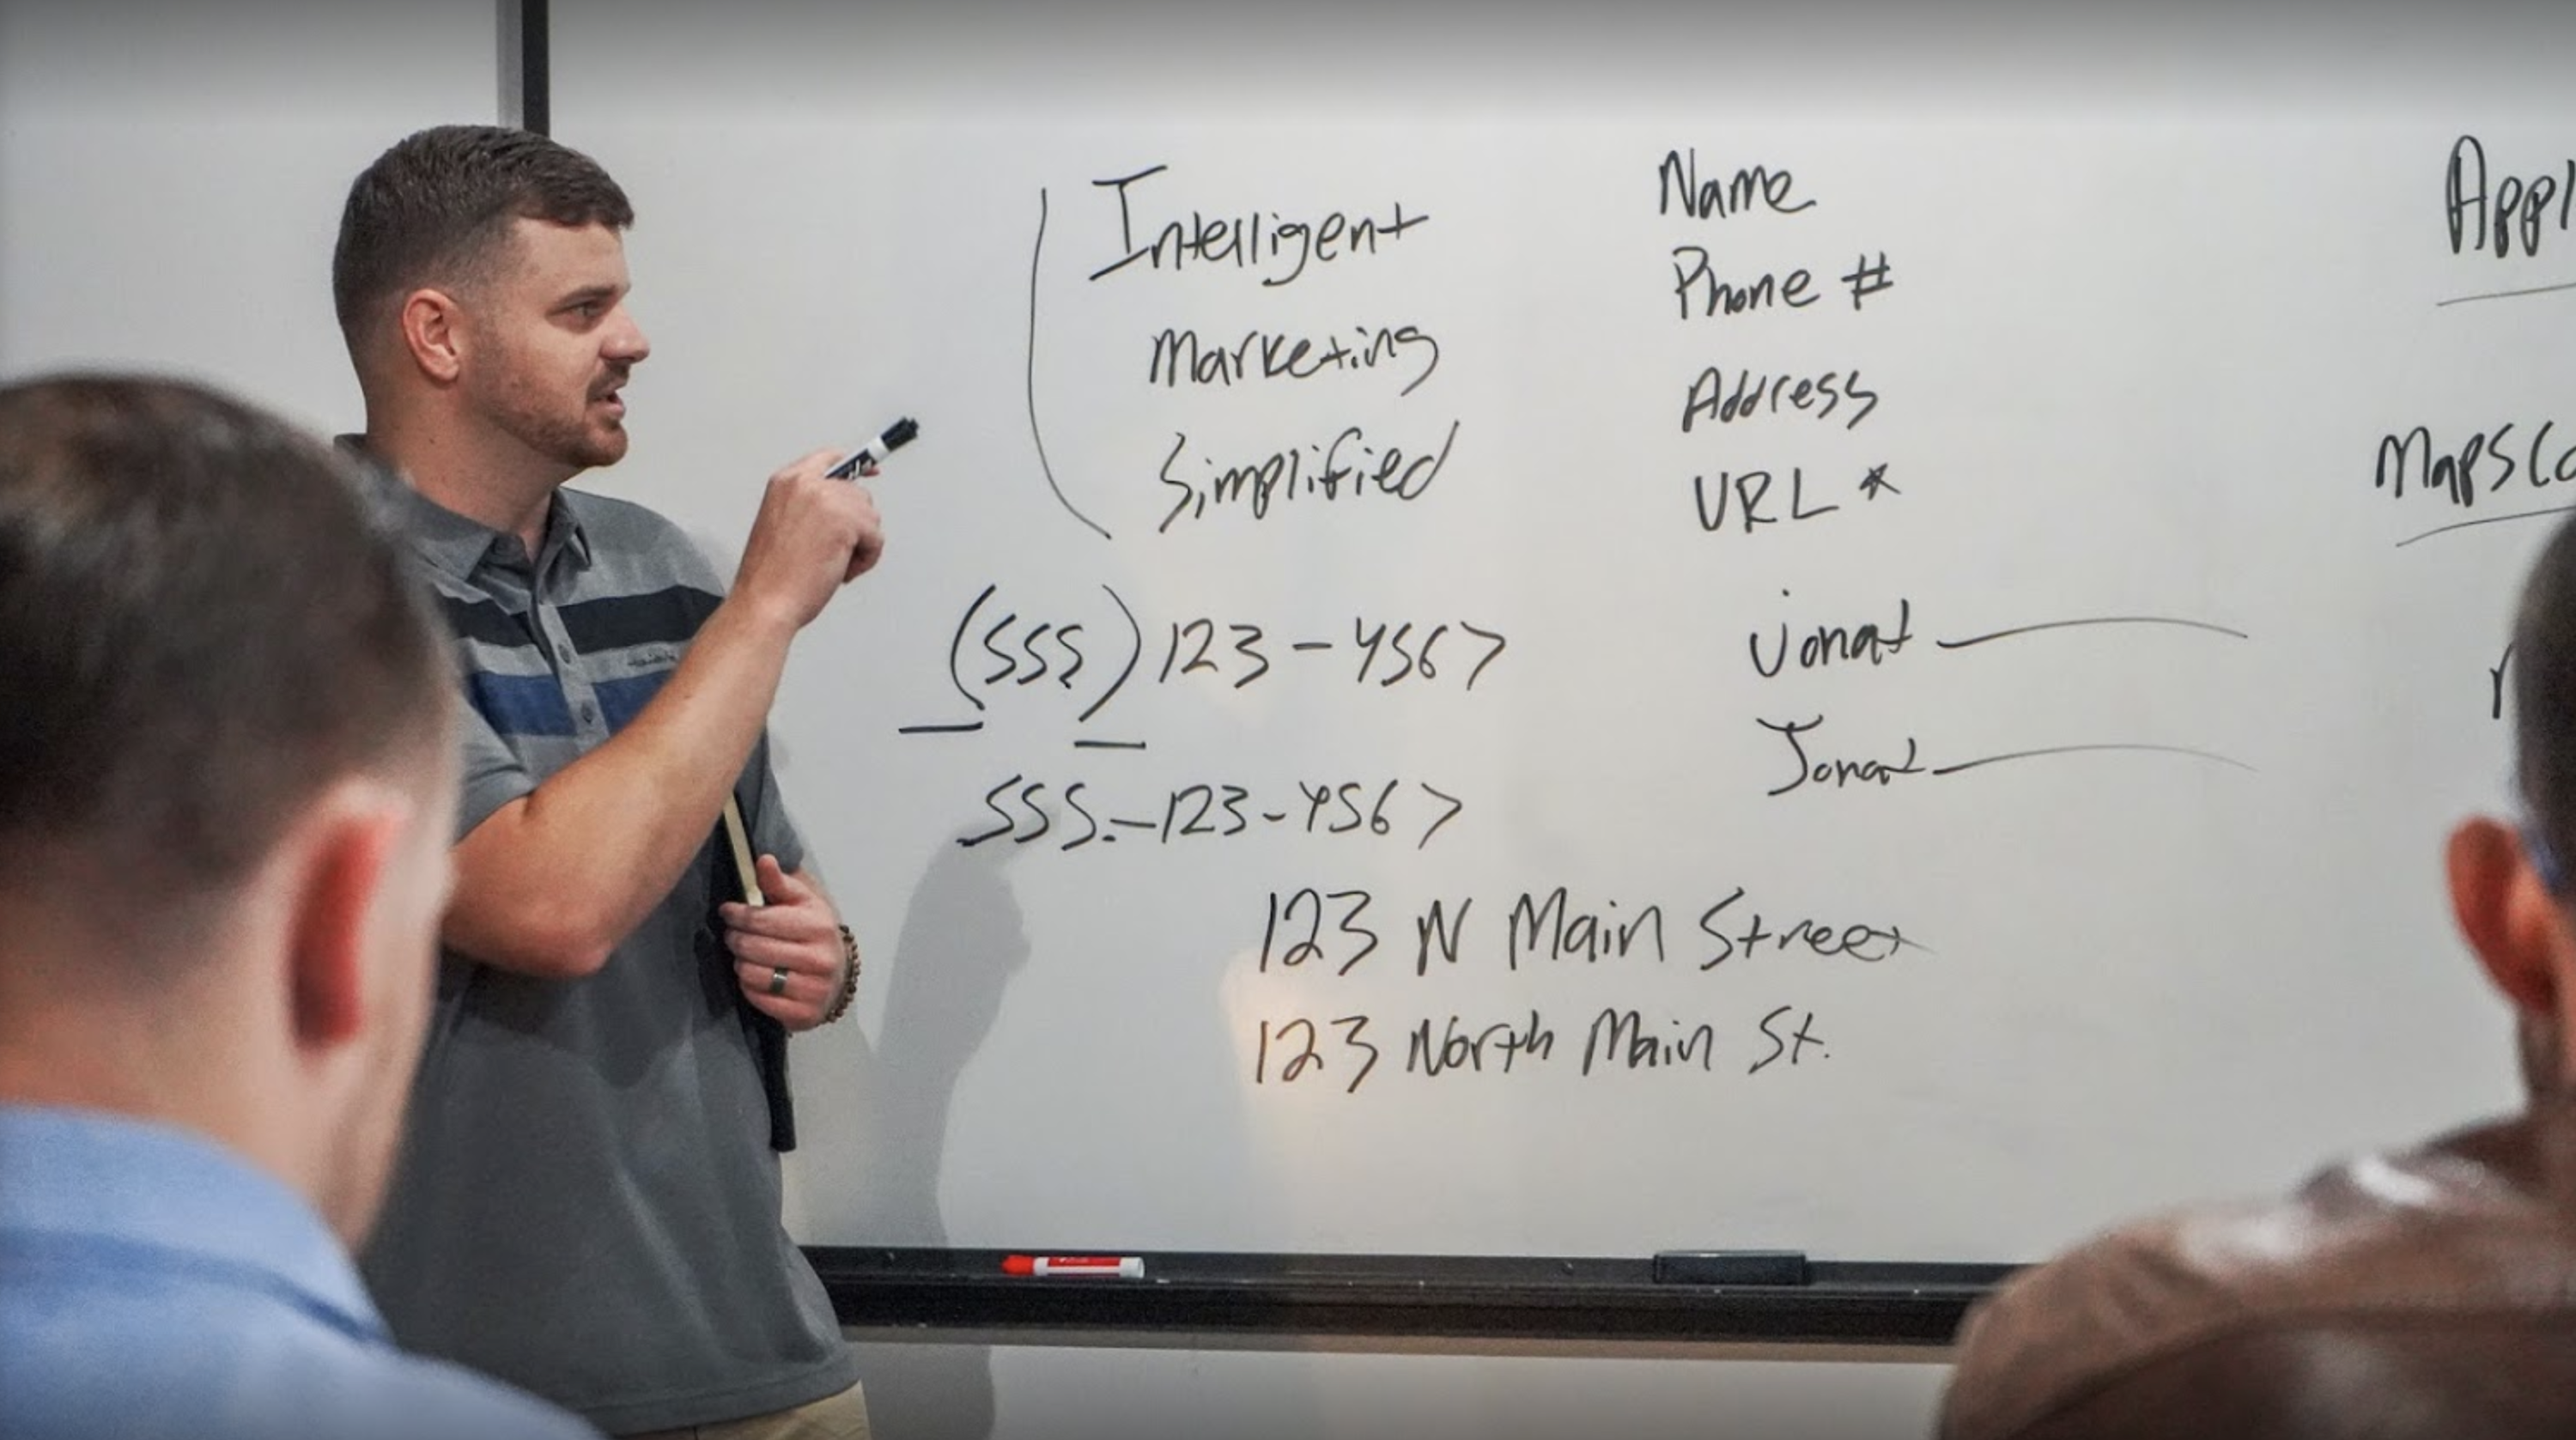 Intelligent
Marketing
Simplified
(555) 123-4567
555.-123-4567
Name
Phone #
Address
URL *
jonat
Jonat
123 N Main Street
123 North Main St.
Appl
Maps (